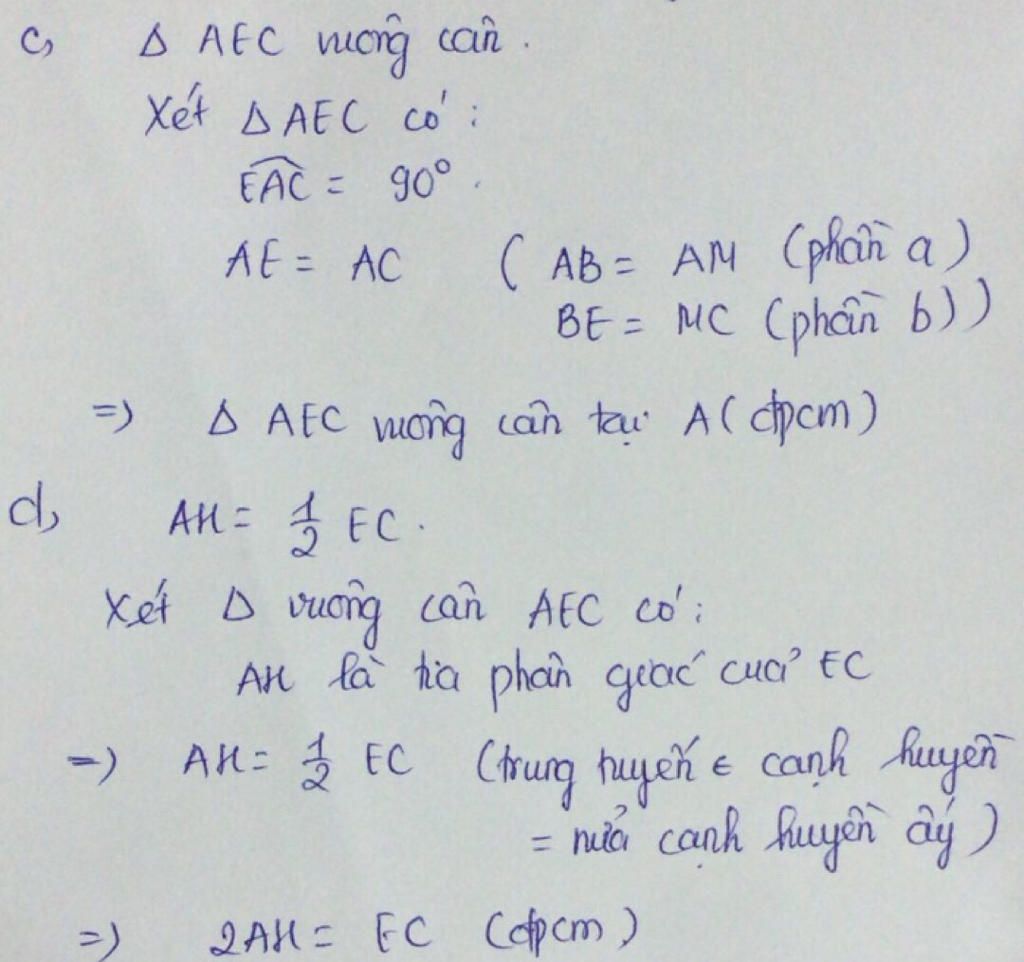 c, Δ AEC vuông cân.
Xét Δ AEC có:
EAC = 90°.
AE = AC ( AB = AM (phần a)
BE = MC (phần b))
=) Δ AEC vuông cân tại A (đpcm)
d, AH = 1/2 EC.
Xét Δ vuông cân AEC có:
AH là tia phân giác của EC
=) AH = 1/2 EC (trung tuyến ϵ cạnh huyền
= nửa cạnh huyền ấy)
=) 2AH = EC (đpcm)